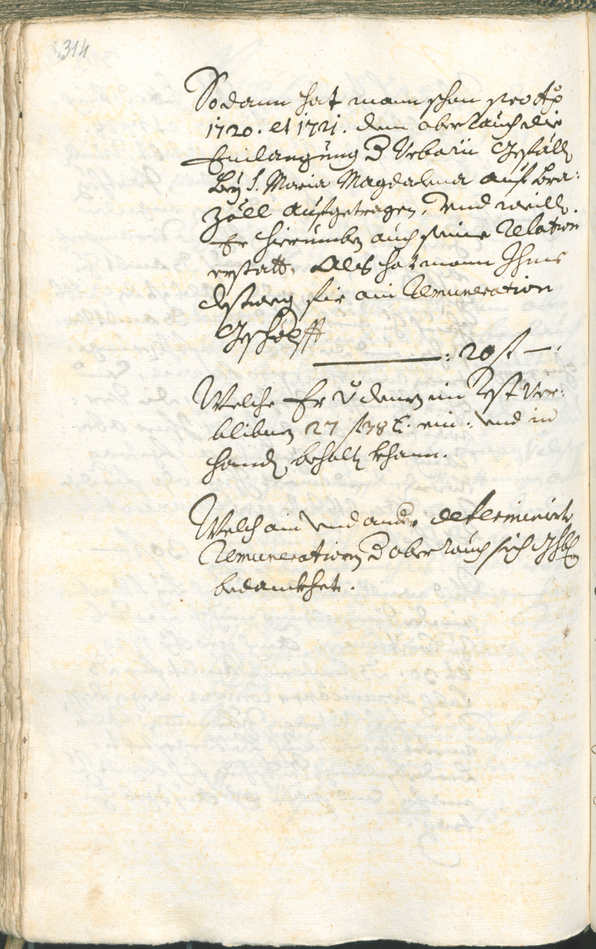 314
Sodann hat mann schon pro Aō
1720. et 1721. dem oberRauch die
Einlangung d Urbarii Gefäll
bey S. Maria Magdalena auf Bra:
zöll aufgetragen, und weill
Er hierumben auch seine Relation
erstatt. Als hat mann Ihme
destweg für ain Remuneration
Geschöpfft
: 20 f —:
Welche Er denen im Rest Ver:
blibnen 27 f 38 x. ein: und in
handen behalten khann.
Welch ain und andere determinierte
Remunerationen d oberRauch sich
bedanckhet.